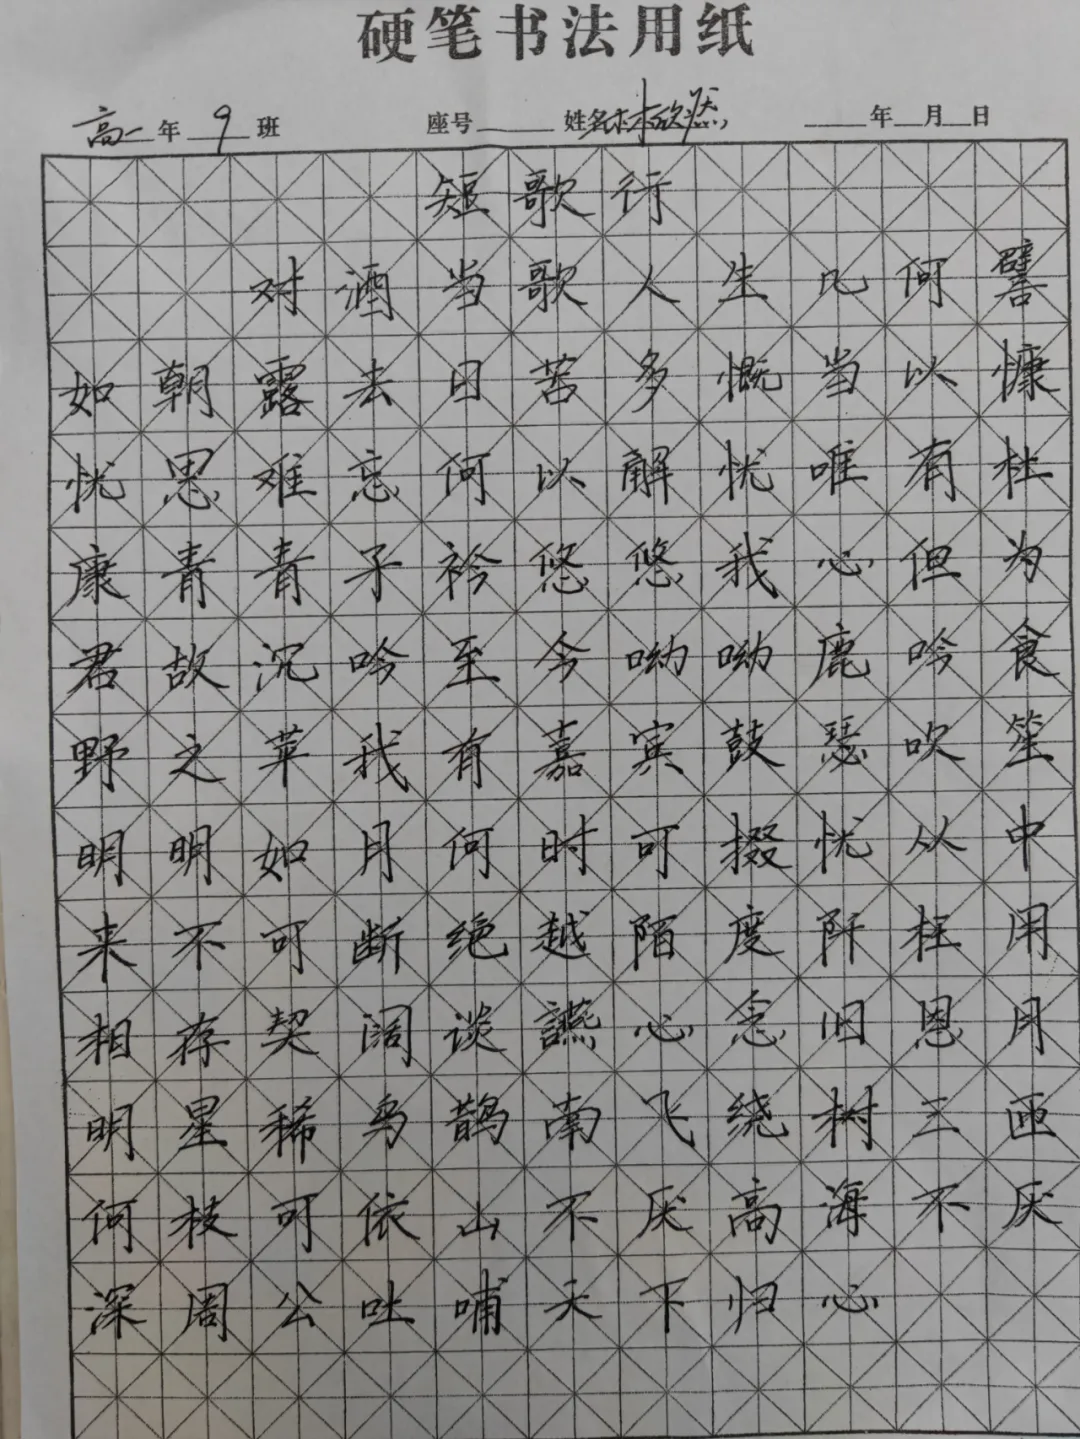 硬笔书法用纸
高一年 9 班 座号 姓名 林欣燃 年 月 日
短歌行
对酒当歌人生几何譬
如朝露去日苦多慨当以慷
忧思难忘何以解忧唯有杜
康青青子衿悠悠我心但为
君故沉吟至今呦呦鹿吟食
野之苹我有嘉宾鼓瑟吹笙
明明如月何时可掇忧从中
来不可断绝越陌度阡枉用
相存契阔谈讌心念旧恩月
明星稀乌鹊南飞绕树三匝
何枝可依山不厌高海不厌
深周公吐哺天下归心